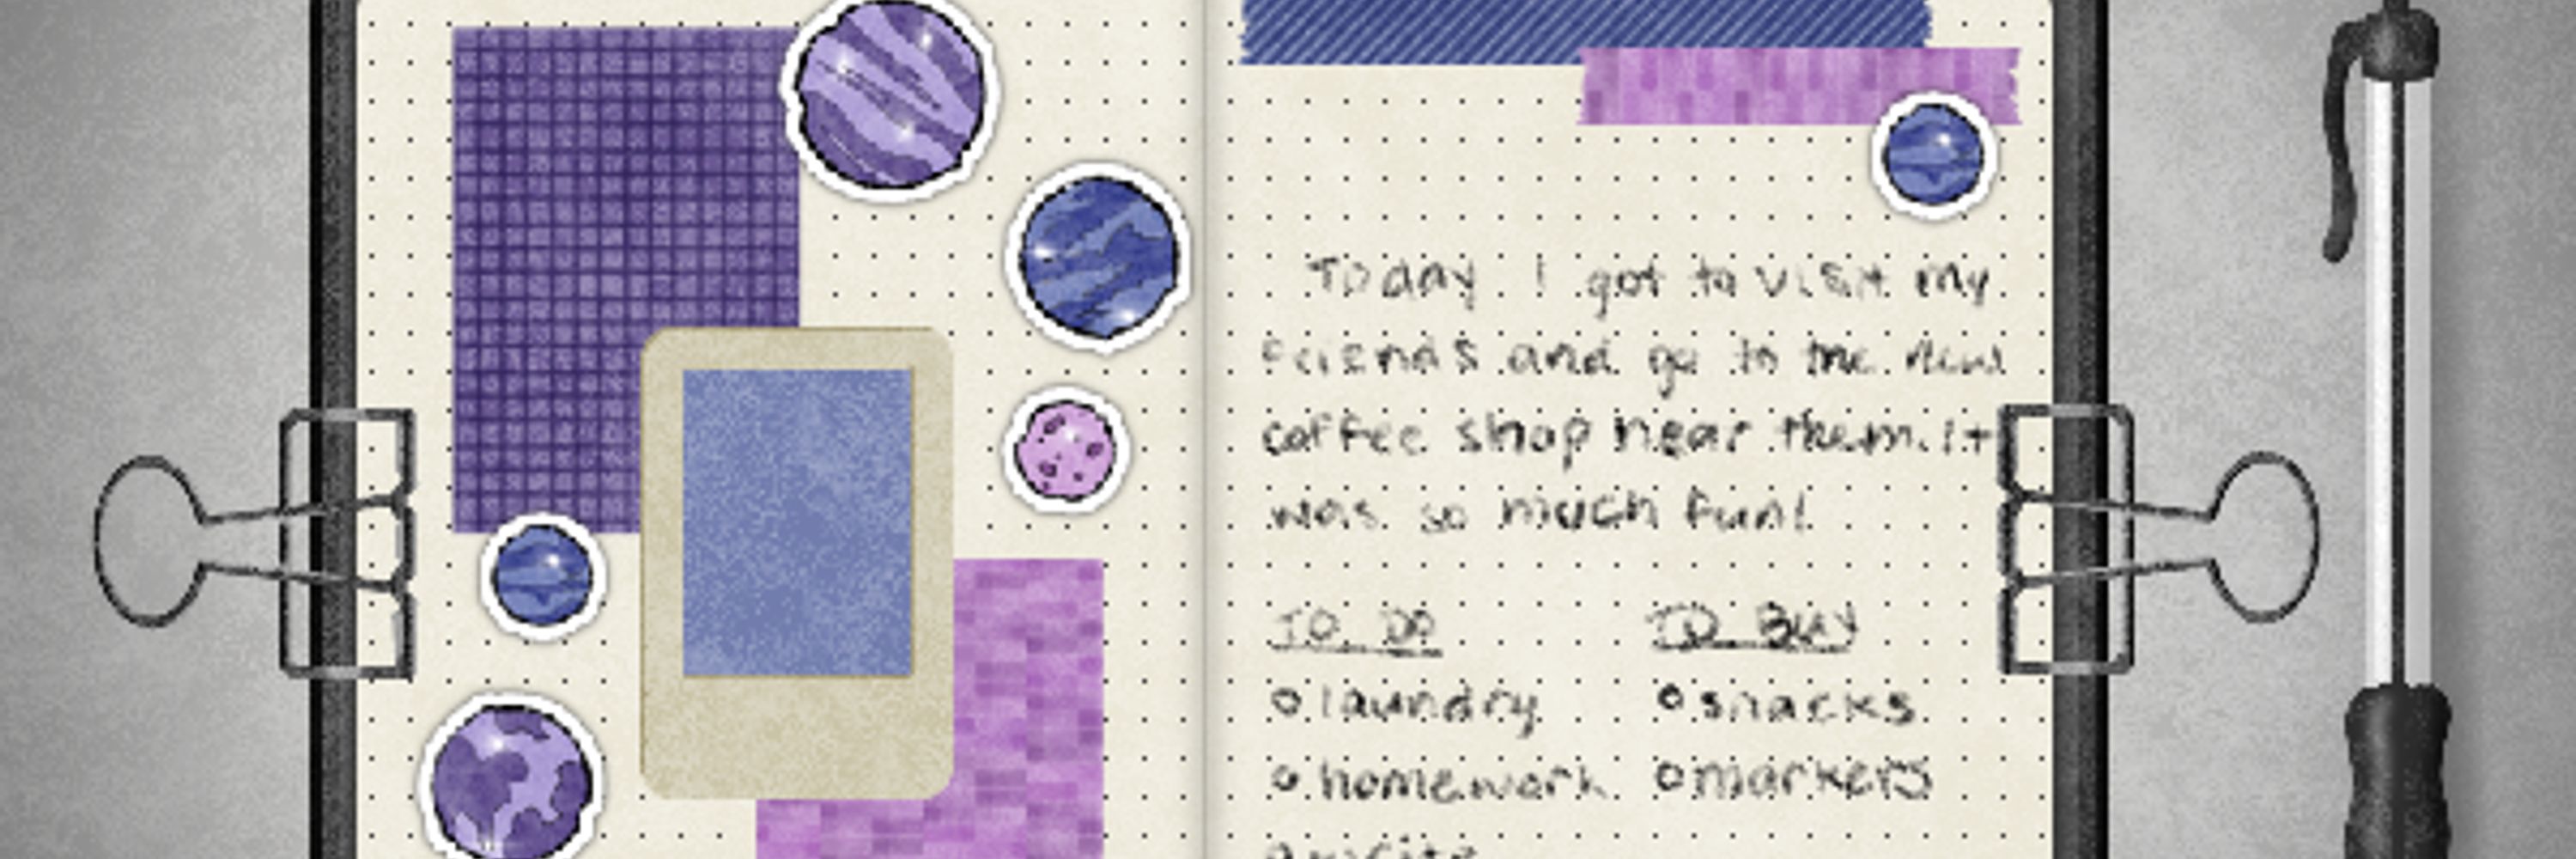 Today I got to visit my
friends and go to the new
coffee shop near them. It
was so much fun!
TO DO
TO BUY
laundry
snacks
homework
markers
write